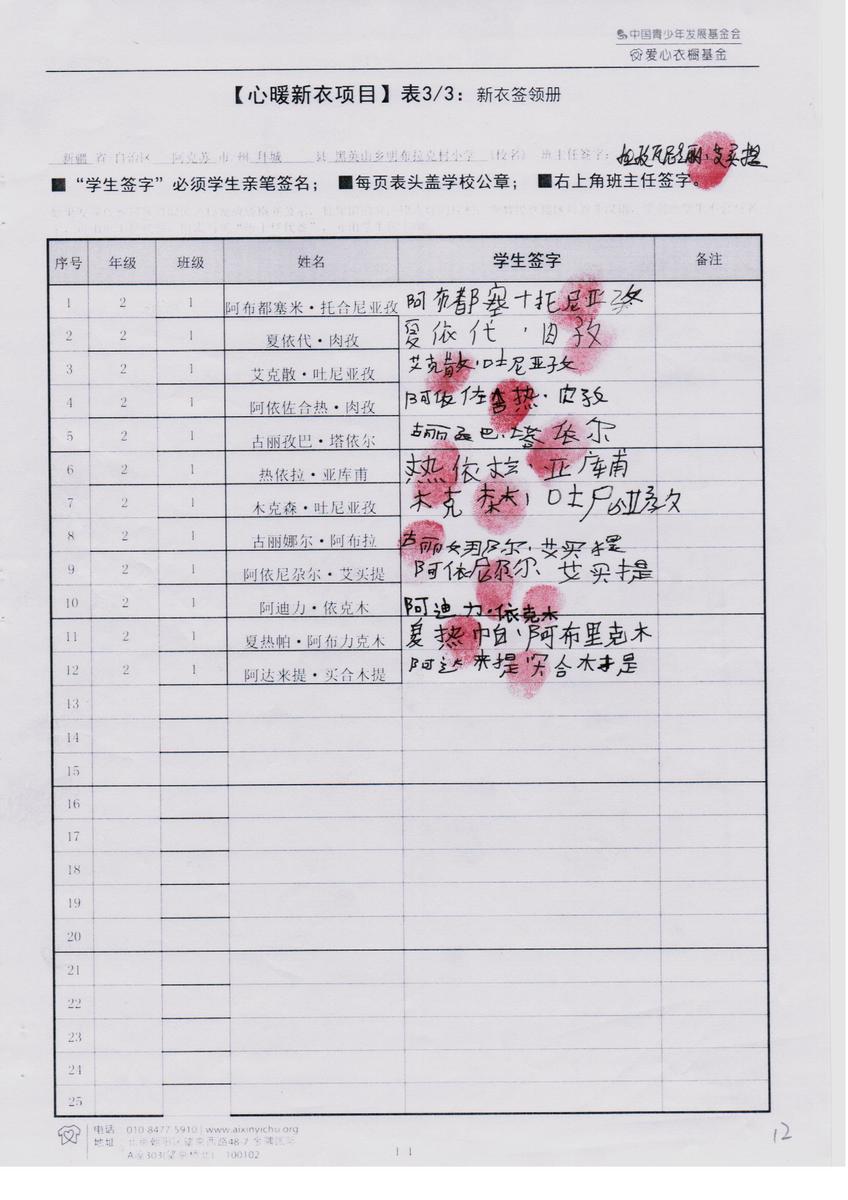 中国青少年发展基金会
爱心衣橱基金
【心暖新衣项目】表3/3：新衣签领册
新疆 省 自治区 阿克苏 市 州 拜城 县 黑英山乡明布拉克村小学 （校名） 班主任签字：
■“学生签字”必须学生亲笔签名； ■每页表头盖学校公章； ■右上角班主任签字。
序号 年级 班级 姓名 学生签字 备注
1 2 1 阿布都塞米·托合尼亚孜 阿布都塞十托尼亚孜
2 2 1 夏依代·肉孜 夏依代·肉孜
3 2 1 艾克散·吐尼亚孜 艾克散·吐尼亚孜
4 2 1 阿依佐合热·肉孜 阿依佐合热·肉孜
5 2 1 古丽孜巴·塔依尔 古丽孜巴·塔依尔
6 2 1 热依拉·亚库甫 热依拉·亚库甫
7 2 1 木克森·吐尼亚孜 木克森·吐尼亚孜
8 2 1 古丽娜尔·阿布拉 古丽娜尔·艾买提
9 2 1 阿依尼尕尔·艾买提 阿依尼尕尔·艾买提
10 2 1 阿迪力·依克木 阿迪力·依克木
11 2 1 夏热帕·阿布力克木 夏热帕·阿布里克木
12 2 1 阿达来提·买合木提 阿达来提·买合木提
13
14
15
16
17
18
19
20
21
22
23
24
25
电话 010-8477-5910 | www.aixinyichu.org
地址 北京朝阳区望京西路48-7
A座303(望京桥北) 100102
11
12